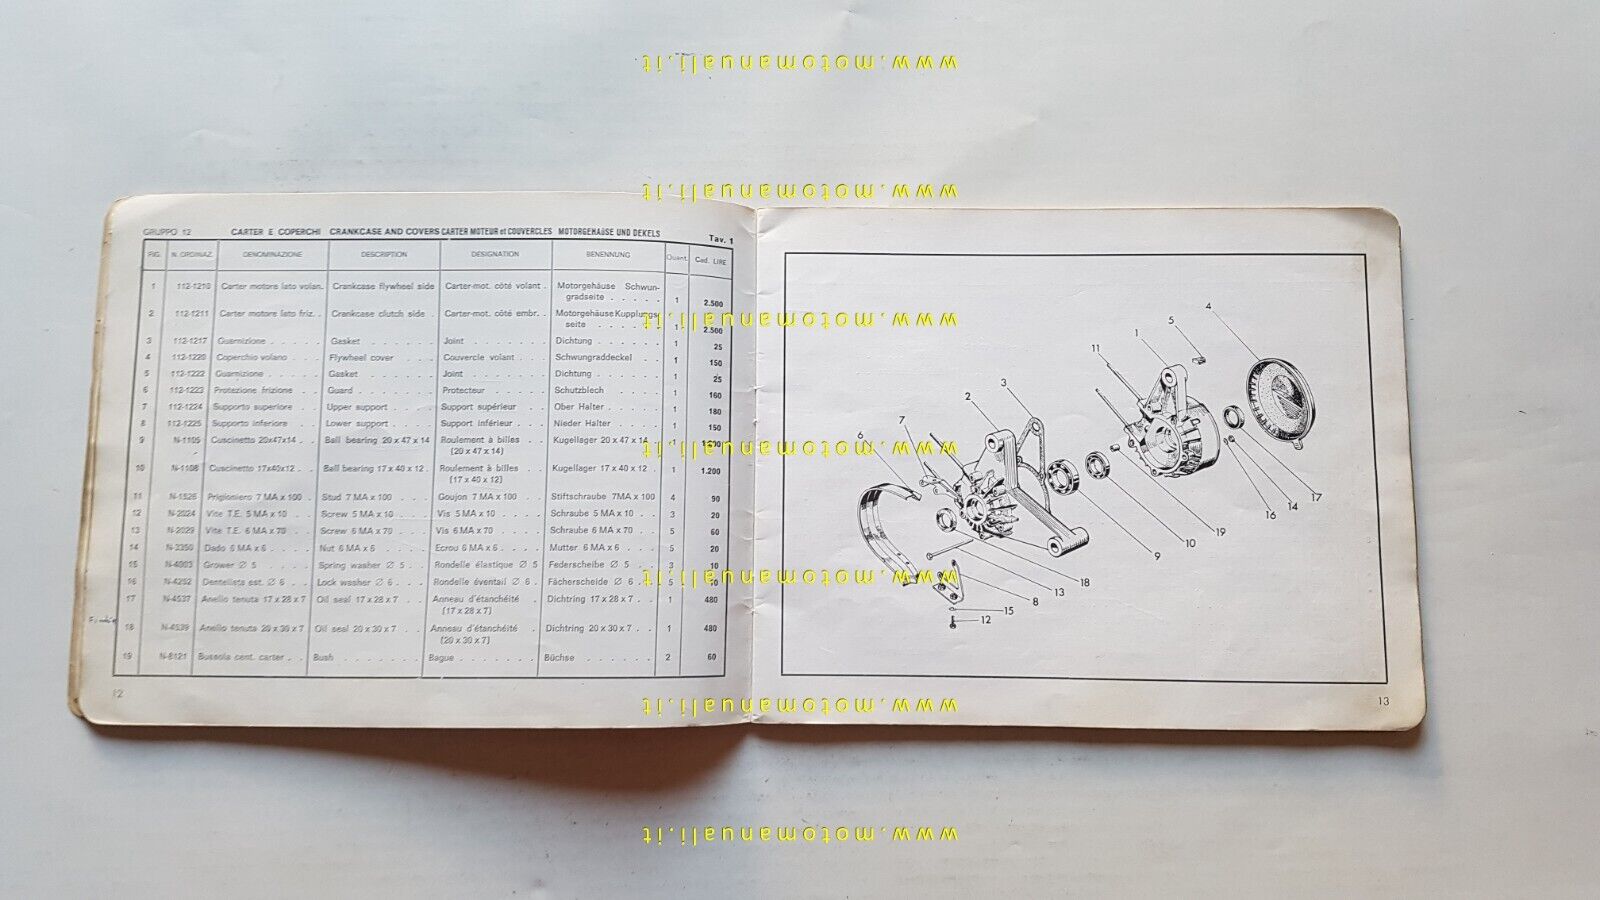 www.motomanuali.it
www.motomanuali.it
GRUPPO 12 CARTER E COPERCHI CRANKCASE AND COVERS CARTER MOTEUR et COUVERCLES MOTORGEHÄUSE UND DEKELS Tav. 1
FIG. N. ORDINAZ. DENOMINAZIONE DESCRIPTION DESIGNATION BENENNUNG Quant. Cad. LIRE
1 112-1210 Carter motore lato volan. Crankcase flywheel side Carter-mot. côté volant . Motorgehäuse Schwun-
gradseite . . . . . 1 2.500
2 112-1211 Carter motore lato friz. . Crankcase clutch side . Carter-mot. côté embr. . Motorgehäuse Kupplungs
seite . . . . 1 2.500
www.motomanuali.it
3 112-1217 Guarnizione . . . . . Gasket . . . . . . Joint . . . . . . Dichtung . . . . . 1 25
4 112-1220 Coperchio volano . . . Flywheel cover . . . Couvercle volant . . . Schwungraddeckel . . 1 150
5 112-1222 Guarnizione . . . . . Gasket . . . . . . Joint . . . . . . Dichtung . . . . . 1 25
6 112-1223 Protezione frizione . . Guard . . . . . . Protecteur . . . . Schutzblech . . . . 1 160
7 112-1224 Supporto superiore . . Upper support . . . . Support supérieur . . Ober Halter . . . . 1 180
8 112-1225 Supporto inferiore . . Lower support . . . . Support inférieur . . Nieder Halter . . . . 1 150
9 N-1105 Cuscinetto 20x47x14 . . Ball bearing 20 x 47 x 14 Roulement à billes . . Kugellager 20 x 47 x 14 1
(20 x 47 x 14)
www.motomanuali.it
10 N-1108 Cuscinetto 17x40x12 . . Ball bearing 17 x 40 x 12 . Roulement à billes . . Kugellager 17 x 40 x 12 . 1 1.200
(17 x 40 x 12)
11 N-1526 Prigioniero 7 MA x 100 . Stud 7 MA x 100 . . . Goujon 7 MA x 100 . . Stiftschraube 7MA x 100 4 90
12 N-2024 Vite T.E. 5 MA x 10 . . Screw 5 MA x 10 . . . Vis 5 MA x 10 . . . . Schraube 5 MA x 10 . . 3 20
13 N-2029 Vite T.E. 6 MA x 70 . . Screw 6 MA x 70 . . . Vis 6 MA x 70 . . . . Schraube 6 MA x 70 . . 5 60
14 N-3350 Dado 6 MA x 6 . . . . Nut 6 MA x 6 . . . . Ecrou 6 MA x 6 . . . . Mutter 6 MA x 6 . . . 5 20
15 N-4003 Grower Ø 5 . . . . . Spring washer Ø 5 . . Rondelle élastique Ø 5 . Federscheibe Ø 5 . . 3 10
16 N-4252 Dentellata est. Ø 6 . . Lock washer Ø 6 . . . Rondelle éventail Ø 6 . Fächerscheide Ø 6 . . 5 10
www.motomanuali.it
17 N-4537 Anello tenuta 17 x 28 x 7 Oil seal 17 x 28 x 7 . . Anneau d'étanchéité . Dichtring 17 x 28 x 7 . . 1 480
(17 x 28 x 7)
18 N-4539 Anello tenuta 20 x 30 x 7 . Oil seal 20 x 30 x 7 . . Anneau d'étanchéité . Dichtring 20 x 30 x 7 . . 1 480
(20 x 30 x 7)
19 N-8121 Bussola cent. carter . . Bush . . . . . . . Bague . . . . . . . Büchse . . . . . . 2 60
12
www.motomanuali.it
4
5
1
11
3
2
7
6
17
14
16
19
10
9
18
13
8
15
12
13
www.motomanuali.it